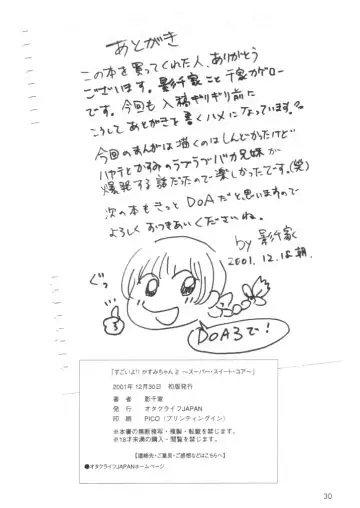 あとがき
この本を買ってくれた人、ありがとう
ございます。影千家こと千家カゲロー
です。今回も入稿ギリギリ前に
こうしてあとがきを書くハメになっています。
今回のまんがは描くのはしんどかったけど
ハヤテとかすみのラブラブバカ兄妹が
爆眠する話だったので楽しかったです。(笑)
次の本もきっとDOAだと思いますので
よろしくおつきあいくださいね。
by 影千家
2001.12.18 朝.
ぐっ
DOA3で!
「すごいよ!! かすみちゃん2 ～スーパー・スイート・コア～」
2001年12月30日 初版発行
著 者 影千家
発 行 オタクライフJAPAN
印 刷 PICO（プリンティングイン）
※本書の無断複写・複製・転載を禁じます。
※18才未満の購入・閲覧を禁じます。
【連絡先・ご意見・ご感想などはこちらへ】
●オタクライフJAPANホームページ
30